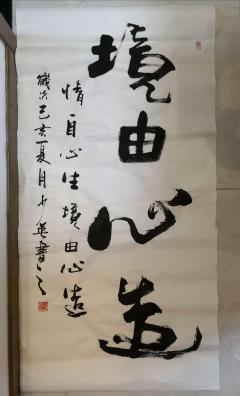 境由心造
情自心生境由心造
岁次己亥夏月少英書之